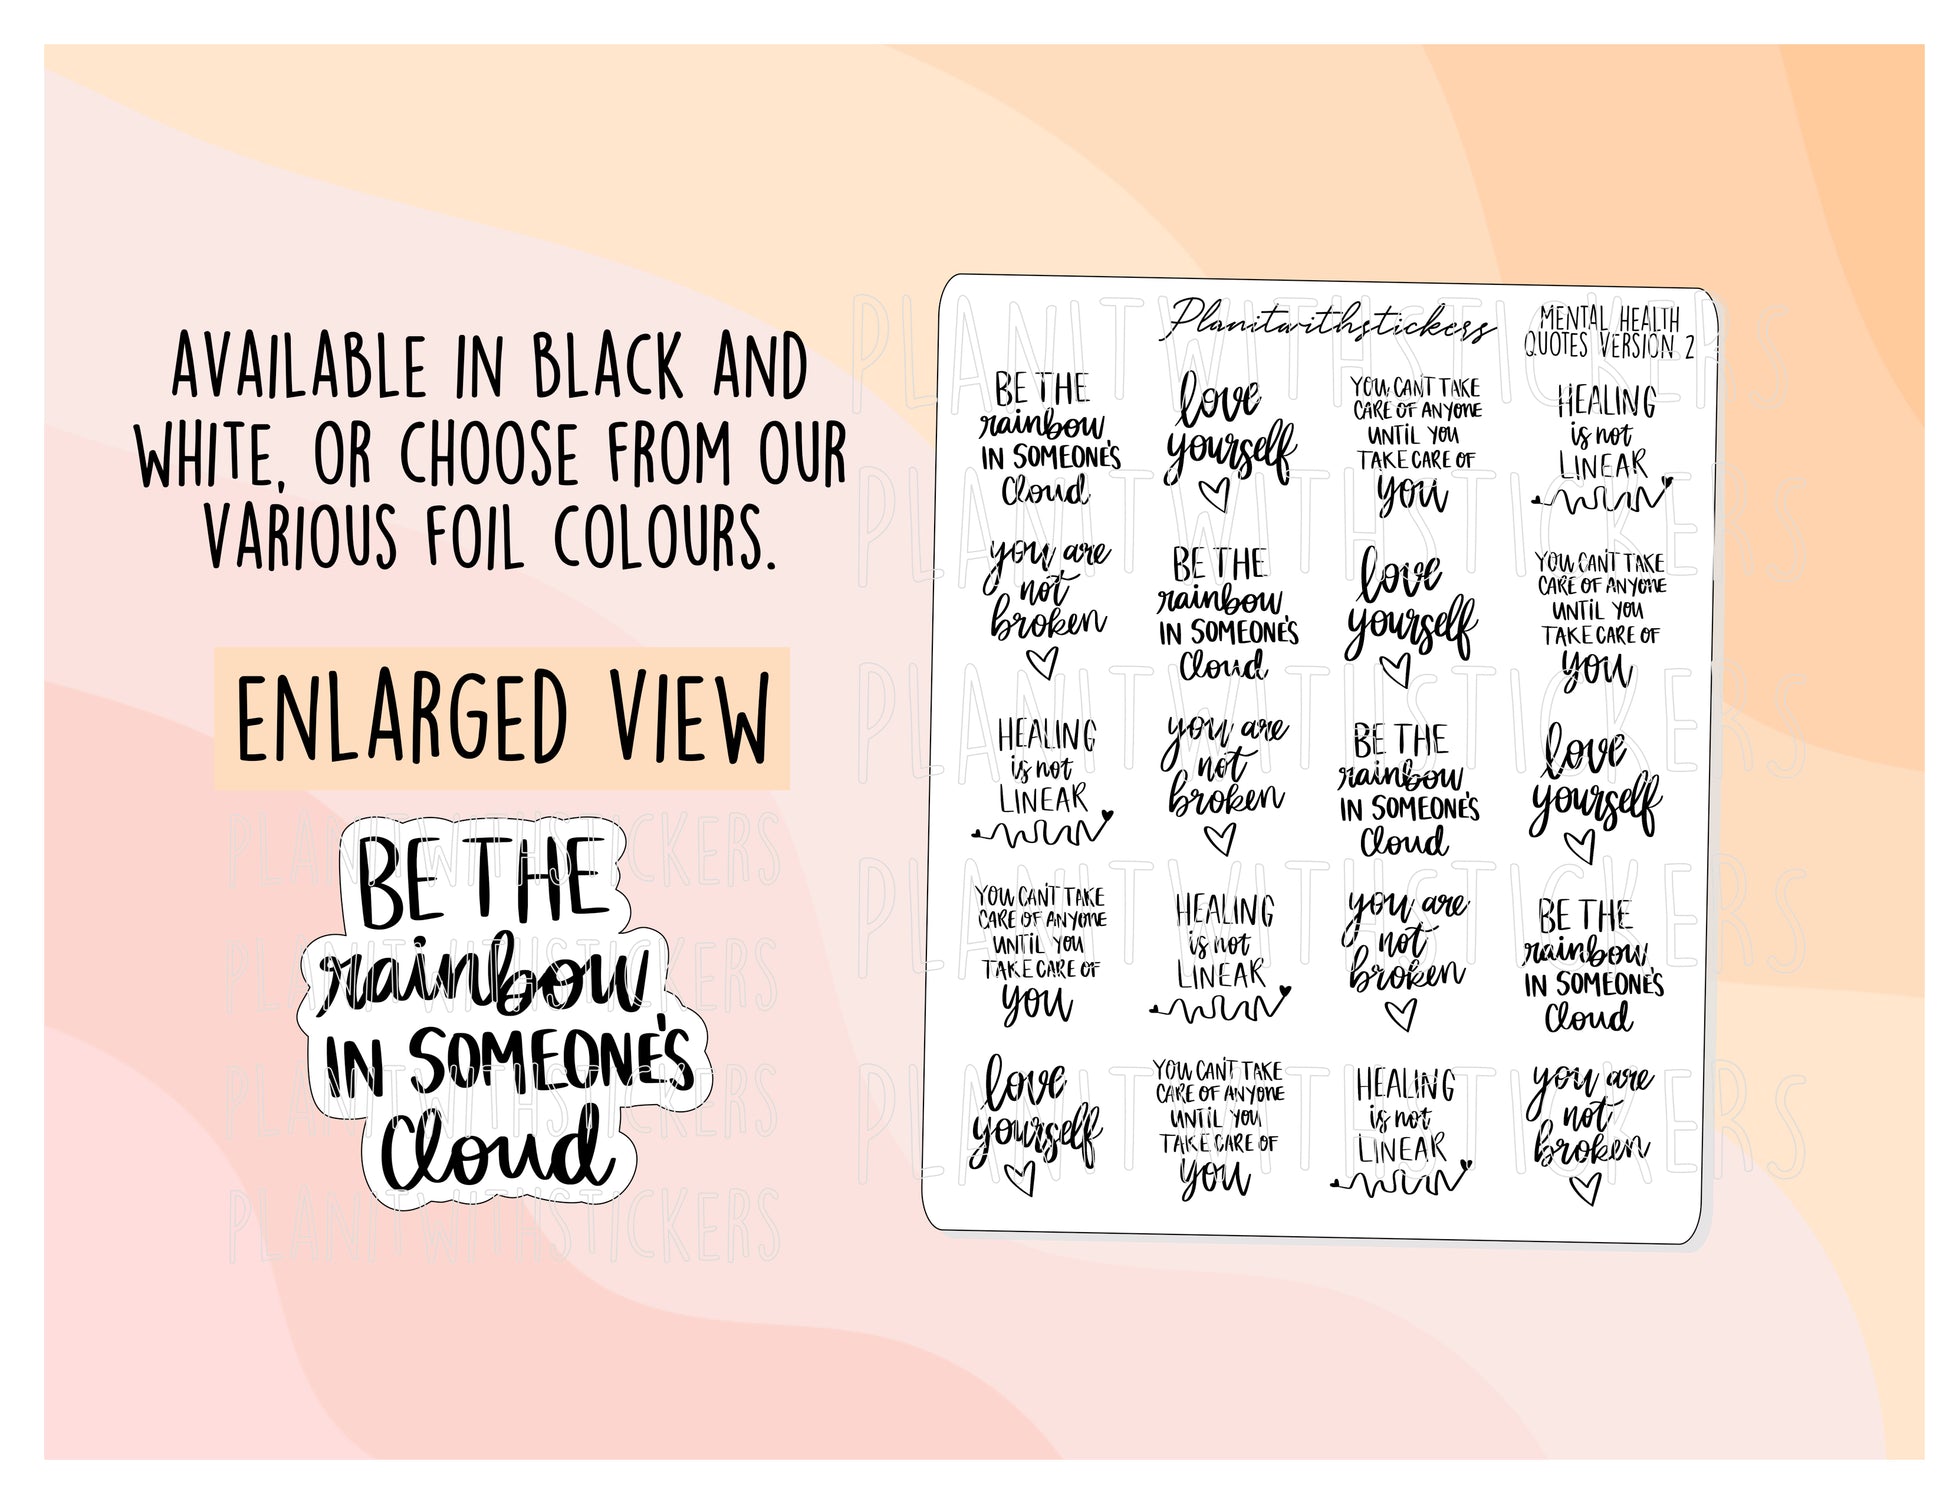 AVAILABLE IN BLACK AND
WHITE, OR CHOOSE FROM OUR
VARIOUS FOIL COLOURS.
ENLARGED VIEW
BE THE
rainbow
IN SOMEONE'S
Cloud
PLANITWITHSTICKERS
PLANITWITHSTICKERS
PLANITWITHSTICKERS
PLANITWITHSTICKERS
Planitwithstickers
MENTAL HEALTH
QUOTES VERSION 2
BE THE
rainbow
IN SOMEONE'S
Cloud
love
yourself
YOU CAN'T TAKE
CARE OF ANYONE
UNTIL YOU
TAKE CARE OF
you
HEALING
is not
LINEAR
you are
not
broken
BE THE
rainbow
IN SOMEONE'S
Cloud
love
yourself
YOU CAN'T TAKE
CARE OF ANYONE
UNTIL YOU
TAKE CARE OF
you
HEALING
is not
LINEAR
you are
not
broken
BE THE
rainbow
IN SOMEONE'S
Cloud
love
yourself
YOU CAN'T TAKE
CARE OF ANYONE
UNTIL YOU
TAKE CARE OF
you
HEALING
is not
LINEAR
you are
not
broken
BE THE
rainbow
IN SOMEONE'S
Cloud
love
yourself
YOU CAN'T TAKE
CARE OF ANYONE
UNTIL YOU
TAKE CARE OF
you
HEALING
is not
LINEAR
you are
not
broken
PLANITWITHSTICKERS
PLANITWITHSTICKERS
PLANITWITHSTICKERS
PLANITWITHSTICKERS
PLANITWITHSTICKERS